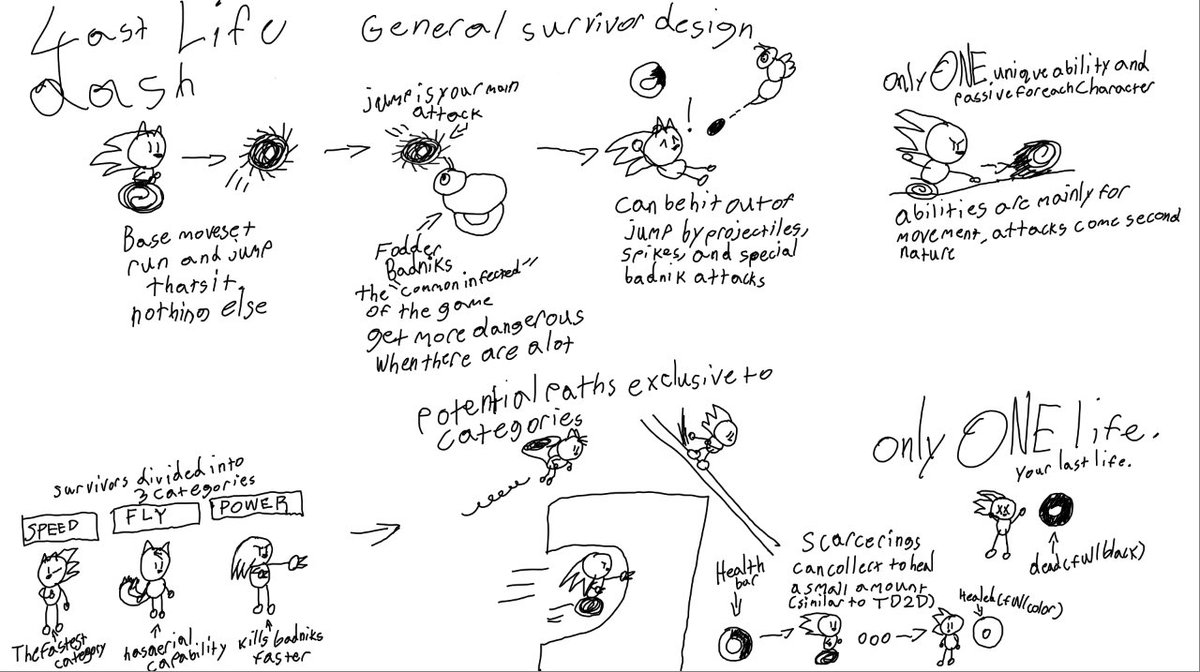 Last Life
dash
General survivor design
Base moveset
run and jump
thats it,
nothing else
jump is your main
attack
Fodder
Badniks
the "common infected"
of the game
get more dangerous
when there are a lot
!
can be hit out of
jump by projectiles,
spikes, and special
badnik attacks
only ONE unique ability and
passive for each character
abilities are mainly for
movement, attacks come second
nature
survivors divided into
3 categories
SPEED
FLY
POWER
The fastest
category
has aerial
capability
kills badniks
faster
potential paths exclusive to
categories
Health
bar
Scarce rings
can collect to heal
a small amount
(similar to TD2D)
only ONE life.
your last life.
dead (full black)
Healed (full color)